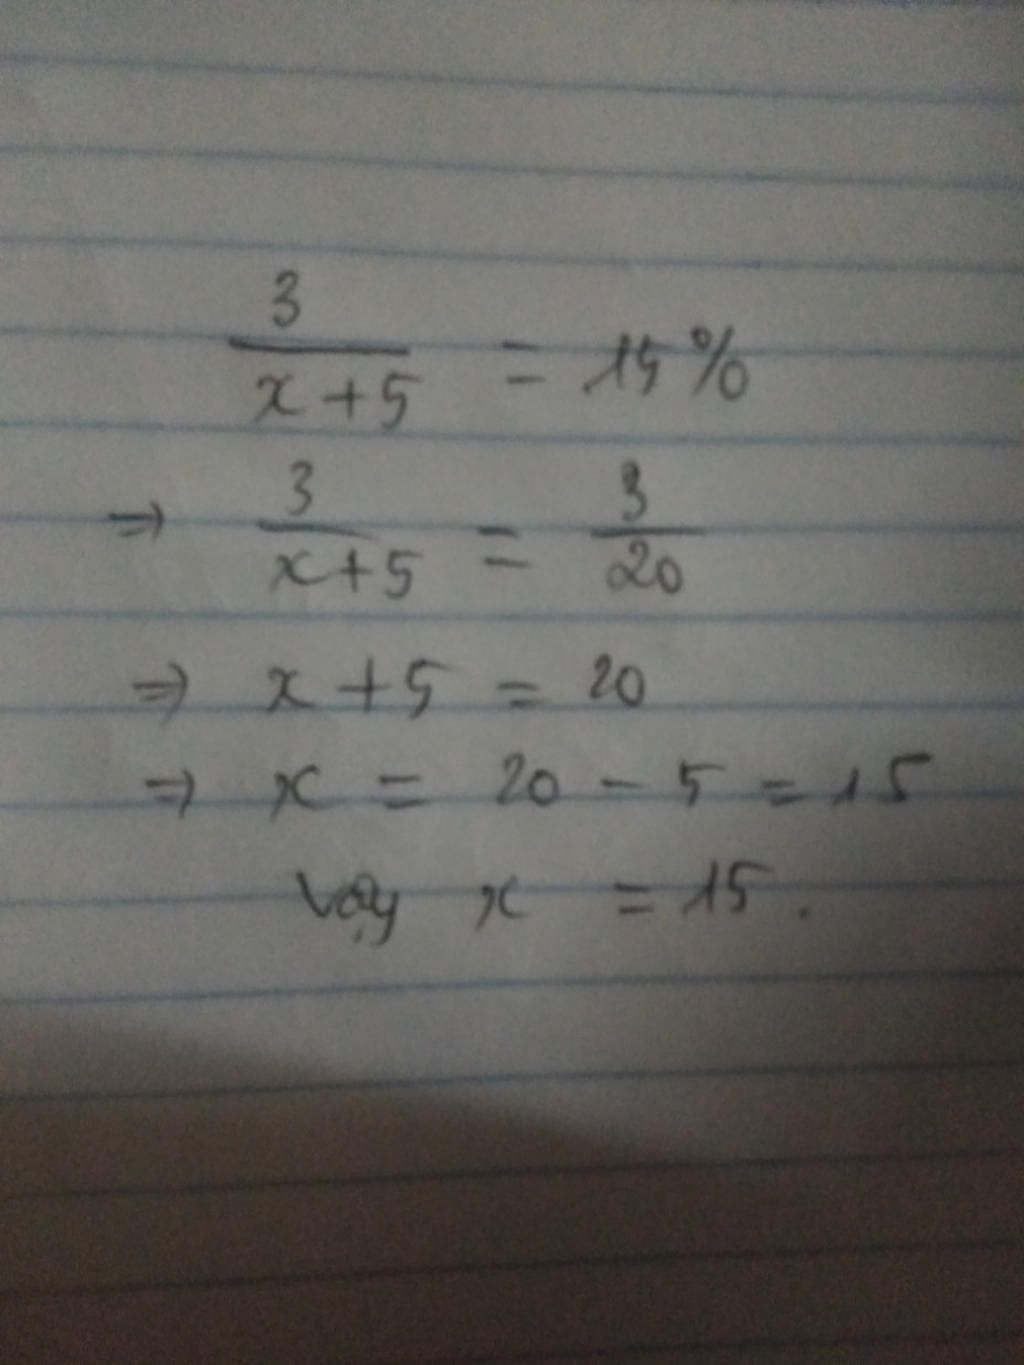 3/(x+5) = 15%
⇒ 3/(x+5) = 3/20
⇒ x+5 = 20
⇒ x = 20 - 5 = 15
Vậy x = 15.